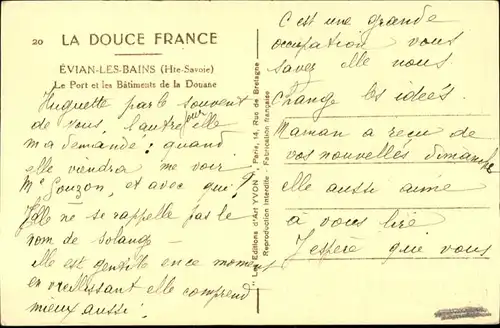 20 LA DOUCE FRANCE
ÉVIAN-LES-BAINS (Hte-Savoie)
Le Port et les Bâtiments de la Douane
Huguette parle souvent
de vous, l'autre jour elle
m'a demande : quand
elle viendra me voir
Me Gouzon, et avec qui ?
Elle ne se rappelle pas le
nom de solange
Elle est gentille en ce moment
en vieillissant elle comprend
mieux aussi !
"Les Editions d'Art YVON", Paris, 14, Rue de Bretagne
Reproduction Interdite - Fabrication Française
C'est une grande
occupation vous
savez elle nous
change les idées.
Maman a reçu de
vos nouvelles dimanche
elle aussi aime
à vous lire
J'espère que vous